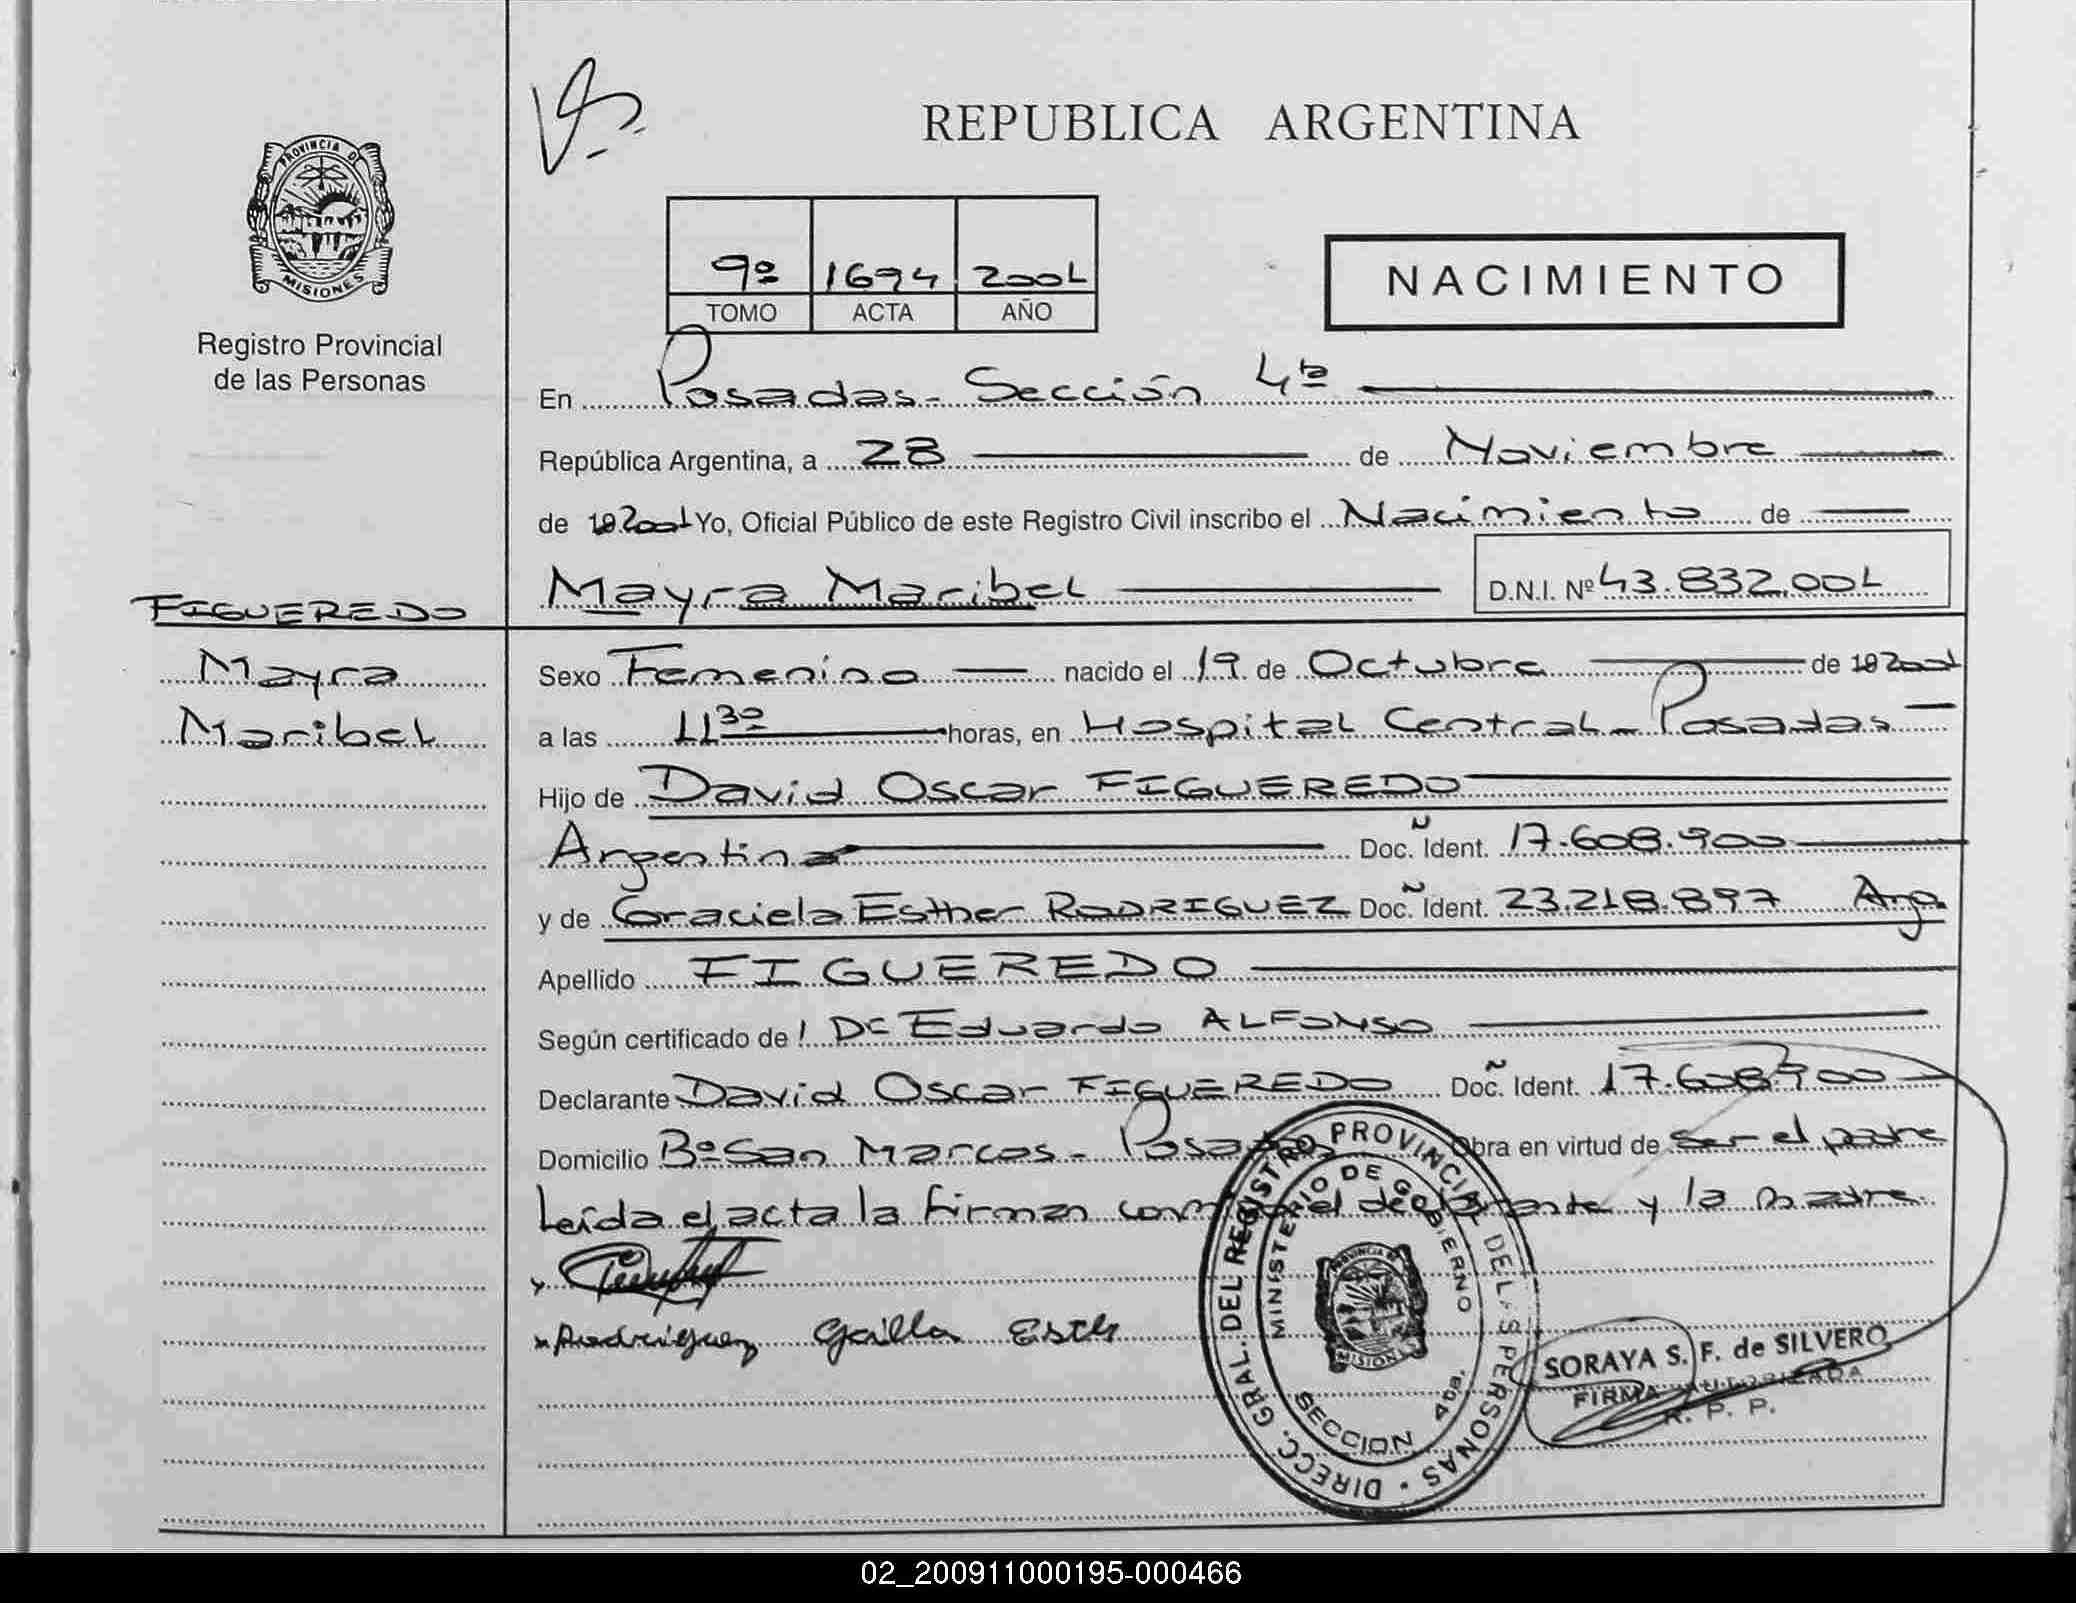 REPUBLICA ARGENTINA
PROVINCIA DE
MISIONES
Registro Provincial
de las Personas
9º 1694 2001
TOMO ACTA AÑO
NACIMIENTO
En Posadas - Sección 4ta
República Argentina, a 28 de Noviembre
de 19 2001 Yo, Oficial Público de este Registro Civil inscribo el Nacimiento de
Mayra Maribel D.N.I. Nº 43.832.001
FIGUEREDO
Mayra
Maribel
Sexo Femenino nacido el 19 de Octubre de 19 2001
a las 11 30 horas, en Hospital Central - Posadas
Hijo de David Oscar FIGUEREDO
Argentina Doc. Ñ Ident. 17.608.900
y de Graciela Esther RODRIGUEZ Doc. Ñ Ident. 23.218.897 Arg.
Apellido FIGUEREDO
Según certificado de l Dr Eduardo ALFONSO
Declarante David Oscar FIGUEREDO Doc. Ñ Ident. 17.608.900
Domicilio Bº San Marcos - Posadas Obra en virtud de ser el padre
Leída el acta la firman conmigo el declarante y la madre.
Rodriguez Esth
DIRECC. GRAL. DEL REGISTRO PROVINCIAL DE LAS PERSONAS
MINISTERIO DE GOBIERNO
PROVINCIA DE
MISIONES
SECCION 4ta.
SORAYA S. F. de SILVERO
FIRMA AUTORIZADA
R. P. P.
02_200911000195-000466